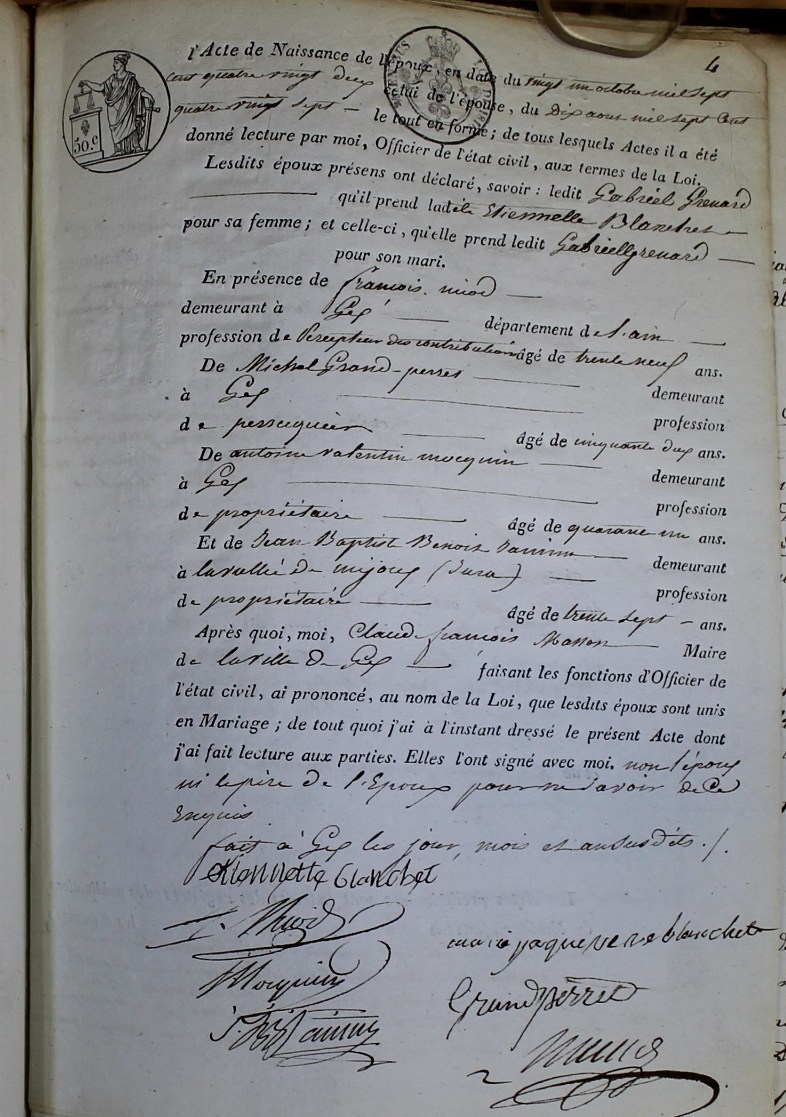 4
l'Acte de Naissance de l'Epoux, en date du vingt un octobre mil sept
cent quatre vingt deux celui de l'épouse, du Dix aout mil sept cent
quatre vingt sept — le tout en forme; de tous lesquels Actes il a été
donné lecture par moi, Officier de l'état civil, aux termes de la Loi.
Lesdits époux présens ont déclaré, savoir : ledit Gabriel Grenard
qu'il prend ladite Etiennette Blanchet
pour sa femme; et celle-ci, qu'elle prend ledit Gabriel Grenard
pour son mari.
En présence de francois
demeurant à Gex département de l'ain
profession de Percepteur des contributions âgé de trente neuf ans.
De Michel Grand-perret demeurant
à Gex profession
de perruquier âgé de cinquante deux ans.
De antoine valentin mocquin demeurant
à Gex profession
de propriétaire âgé de quarante un ans.
Et de Jean Baptist Benoit demeurant
à la vallée de mijoux (Jura) profession
de propriétaire âgé de trente sept ans.
Après quoi, moi, Claude francois Maire
de la ville De Gex faisant les fonctions d'Officier de
l'état civil, ai prononcé, au nom de la Loi, que lesdits époux sont unis
en Mariage; de tout quoi j'ai à l'instant dressé le présent Acte dont
j'ai fait lecture aux parties. Elles l'ont signé avec moi. non l'époux
ni le père de l'Epoux pour ne savoir de Ce
Enquis
fait à Gex les jour, mois et an susdits ./.
Etiennette blanchet
blanchet
Mocquin
Grandperret
50.c